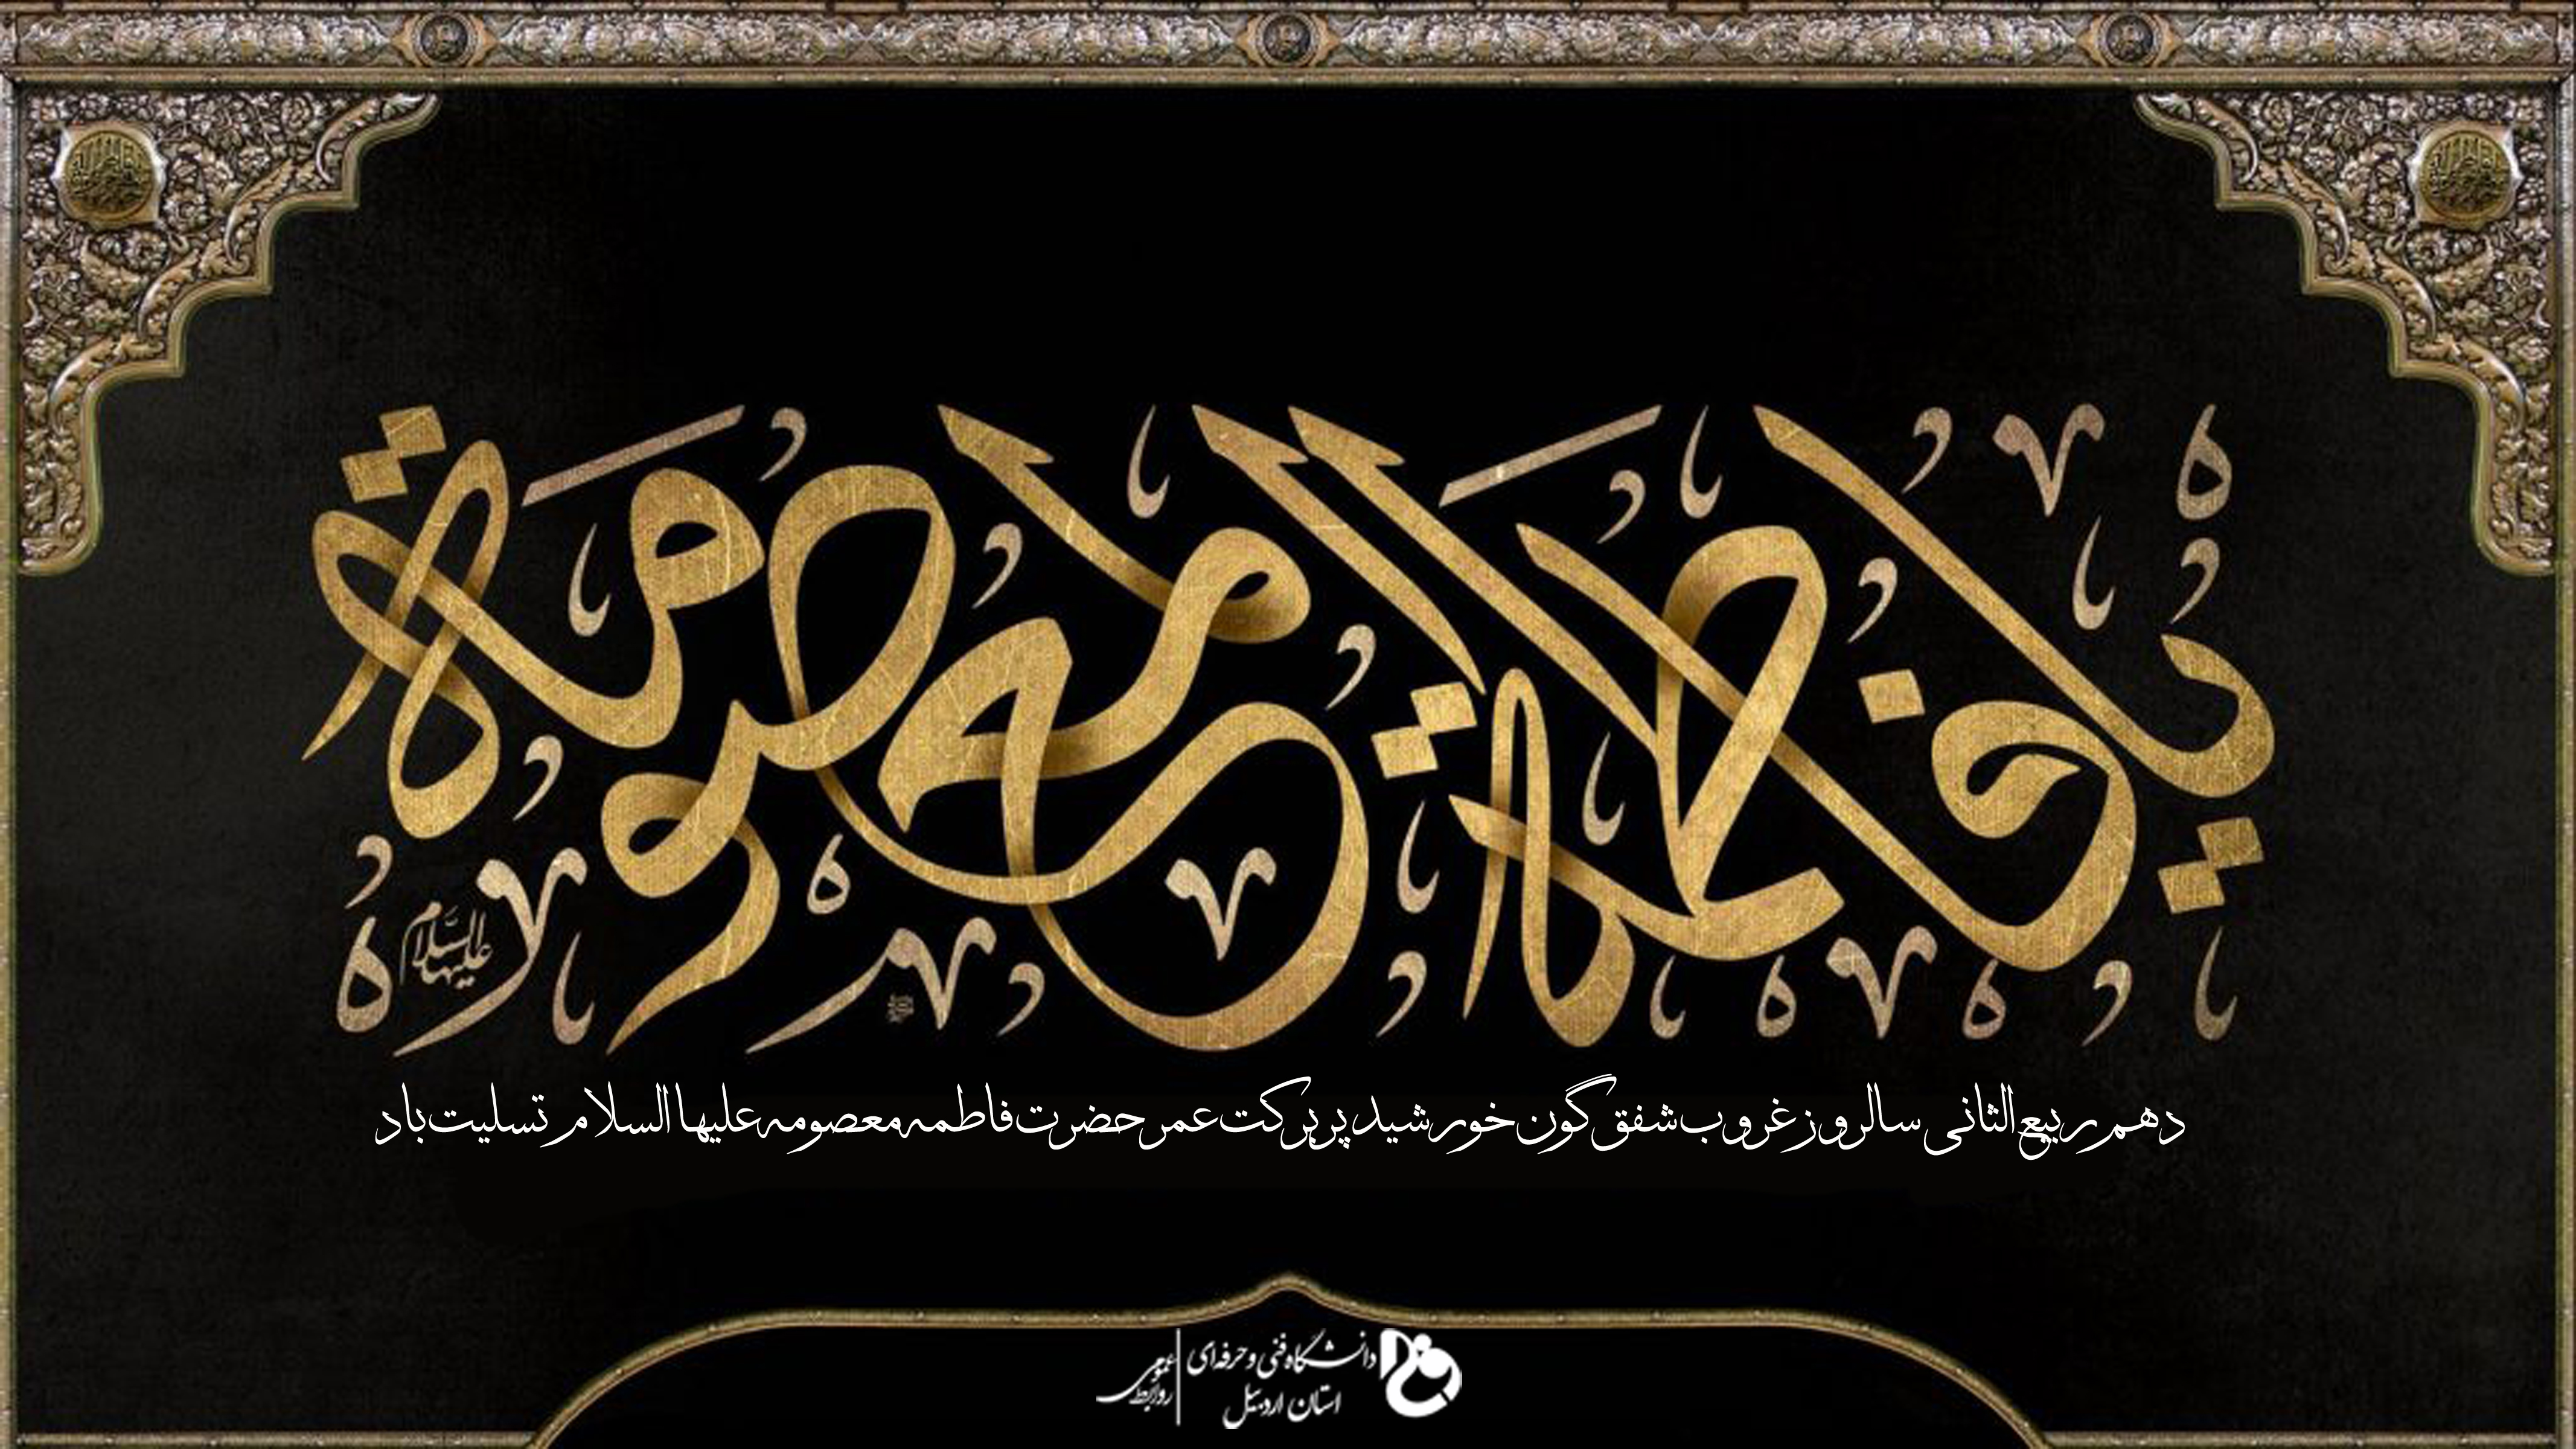 یا فاطمة المعصومة
علیها السلام
دهم ربیع الثانی سالروز غروب شفق گون خورشید پربرکت عمر حضرت فاطمه معصومه علیها السلام تسلیت باد
دانشگاه فنی و حرفه‌ای
استان اردبیل
روابط عمومی